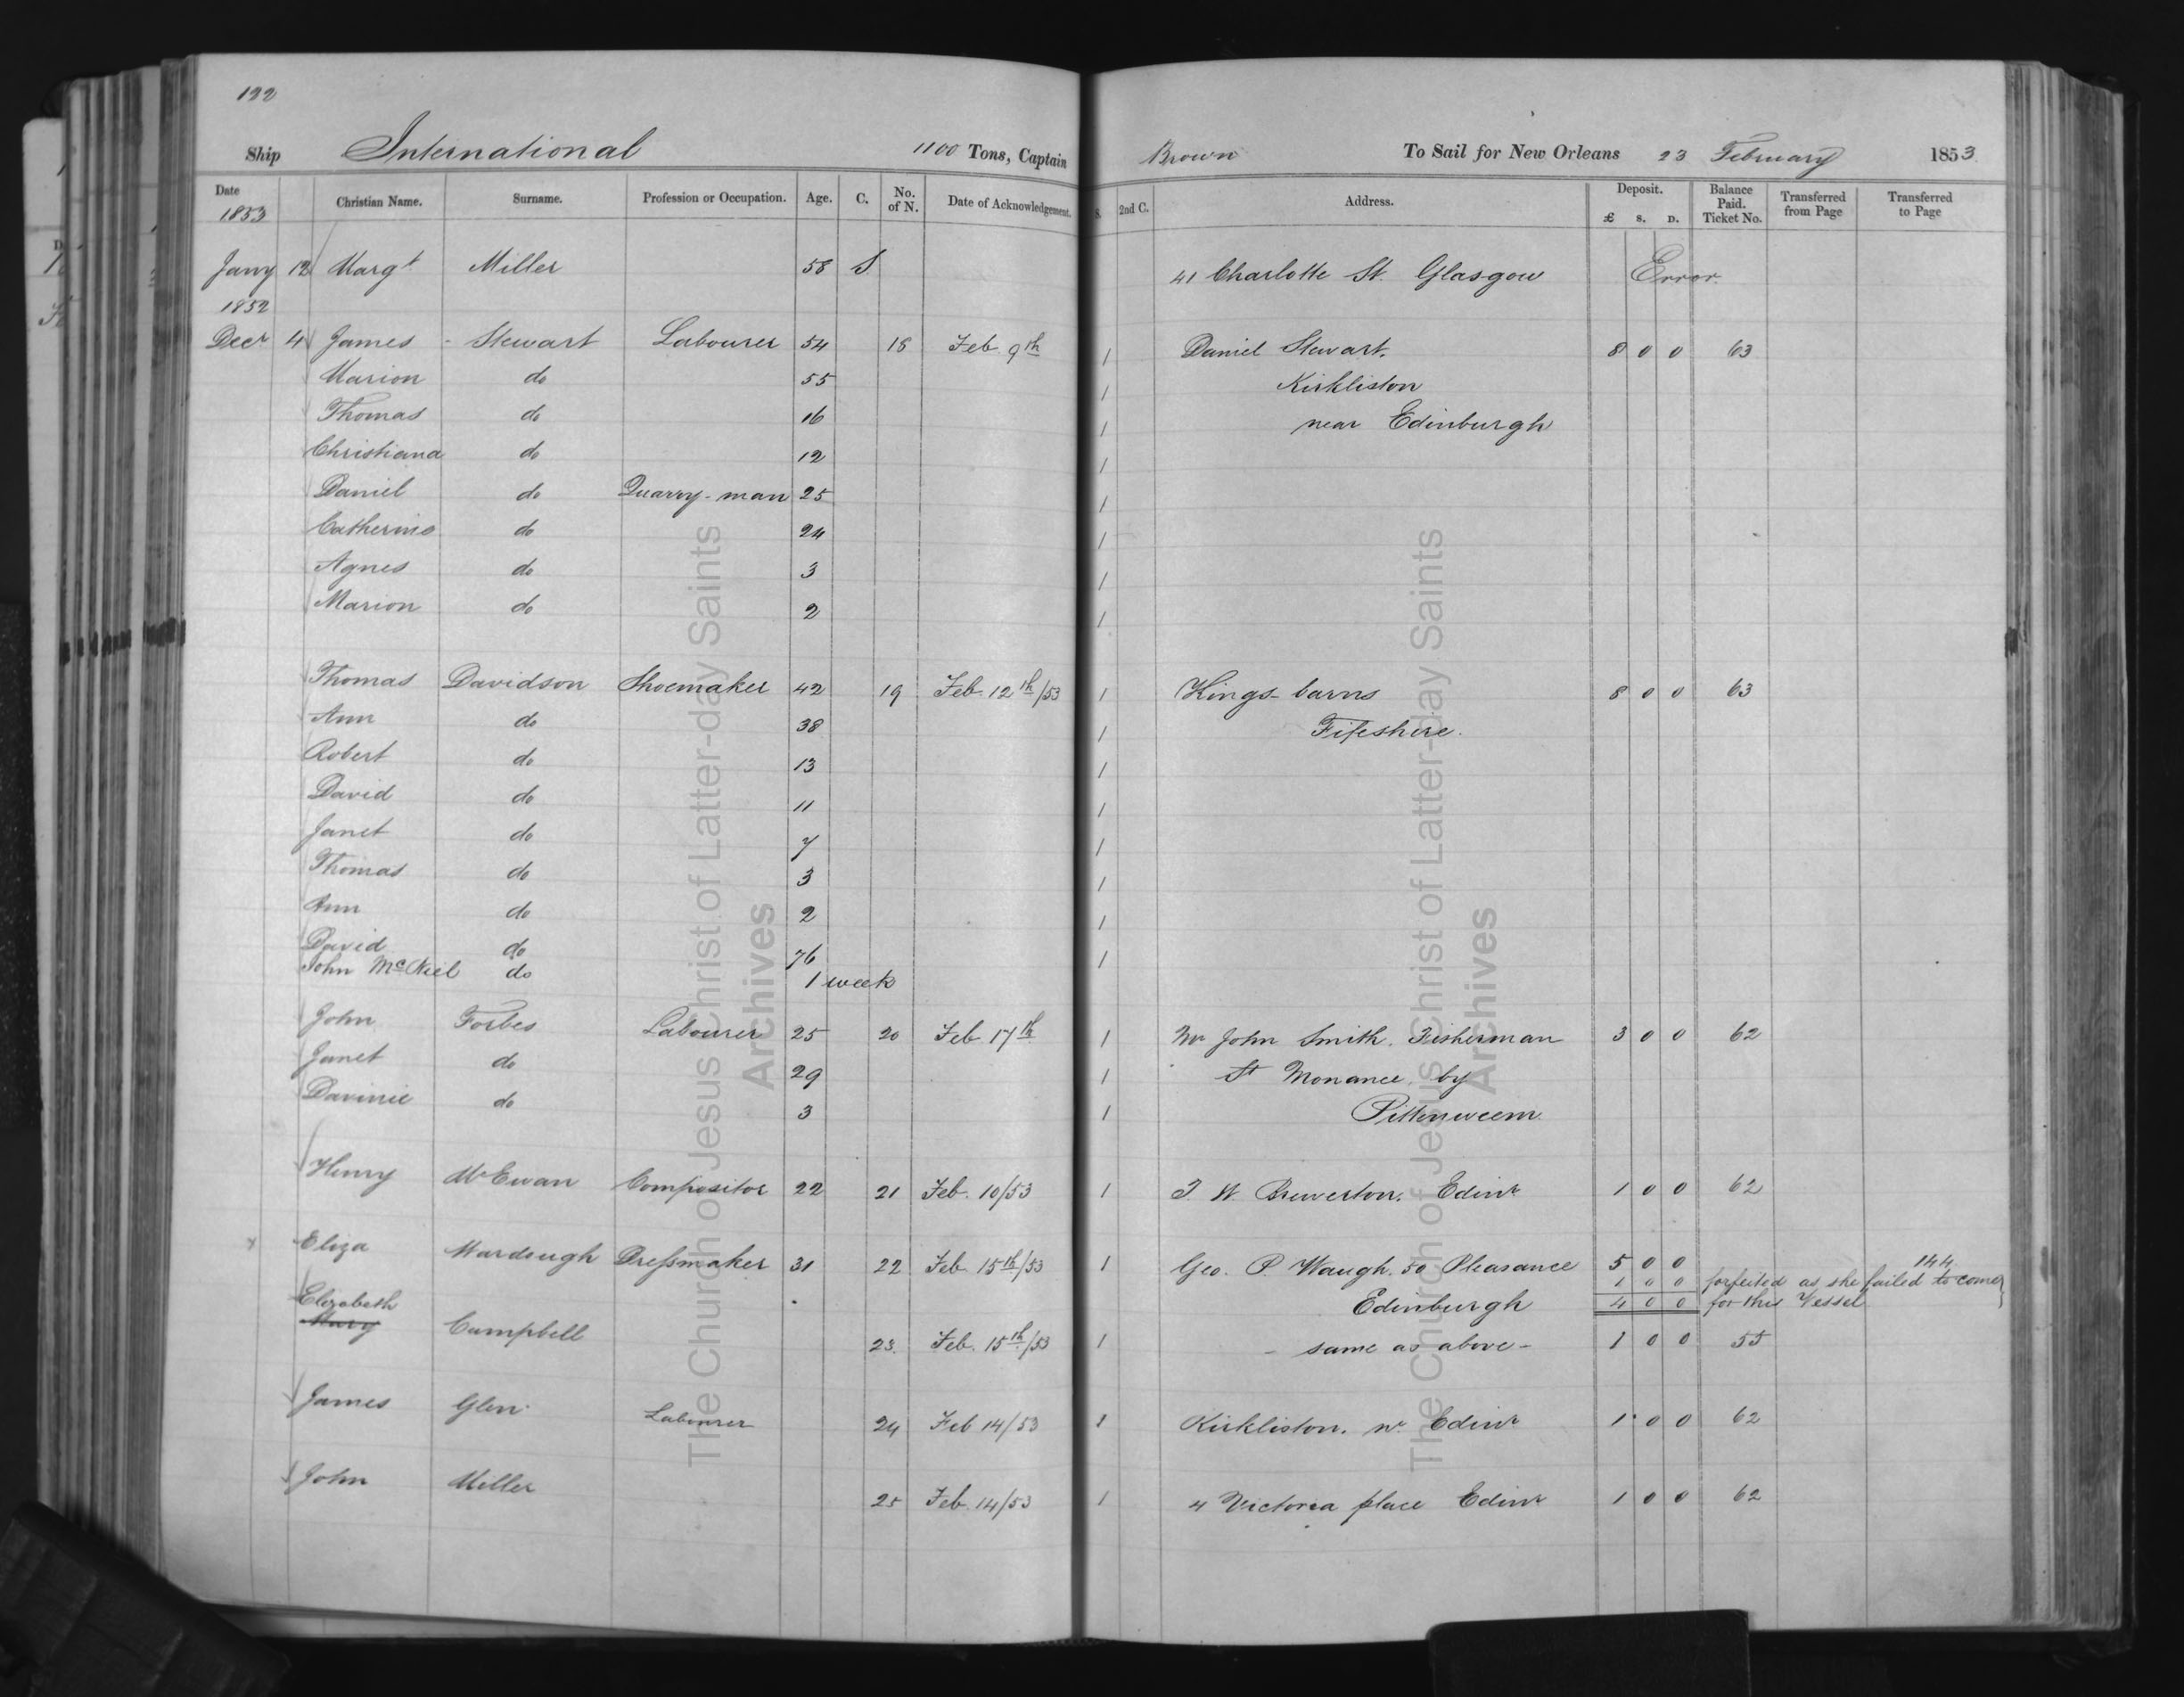 122
Ship International 1100 Tons, Captain Brown To Sail for New Orleans 23 February 1853
Date 1853 Christian Name. Surname. Profession or Occupation. Age. C. No. of N. Date of Acknowledgement. S. 2nd C. Address. Deposit. £ s. D. Balance Paid. Ticket No. Transferred from Page Transferred to Page
Jany 12 Margt Miller 58 S 41 Charlotte St. Glasgow Error
1852
Decr 4 James Stewart Labourer 54 18 Feb 9th 1 Daniel Stewart. 8 0 0 63
Marion do 55 1 Kirkliston
Thomas do 16 1 near Edinburgh
Christiana do 12 1
Daniel do Quarry-man 25 1
Catherine do 24 1
Agnes do 3 1
Marion do 2 1
Thomas Davidson Shoemaker 42 19 Feb 12th/53 1 Kings-barns 8 0 0 63
Ann do 38 1 Fifeshire.
Robert do 13 1
David do 11 1
Janet do 7 1
Thomas do 3 1
Ann do 2 1
David do 76 1
John McNiel do 1 week
John Forbes Labourer 25 20 Feb 17th 1 Mr John Smith. Fisherman 3 0 0 62
Janet do 29 1 St Monance, by
Davinie do 3 1 Pittenweem
Henry McEwan Compositor 22 21 Feb. 10/53 1 J. W. Brewerton. Edinr 1 0 0 62
x Eliza Murdough Dressmaker 31 22 Feb 15th/53 1 Geo. P. Waugh. 50 Pleasance 5 0 0 144
1 0 0 forfeited as she failed to come
Edinburgh 4 0 0 for this Vessel
Elizabeth
Mary Campbell 23. Feb. 15th/53 1 - same as above - 1 0 0 55
James Glen Labourer 24 Feb 14/53 1 Kirkliston. nr Edinr 1 0 0 62
John Miller 25 Feb. 14/53 1 4 Victoria place Edinr 1 0 0 62
The Church of Jesus Christ of Latter-day Saints
Archives
The Church of Jesus Christ of Latter-day Saints
Archives